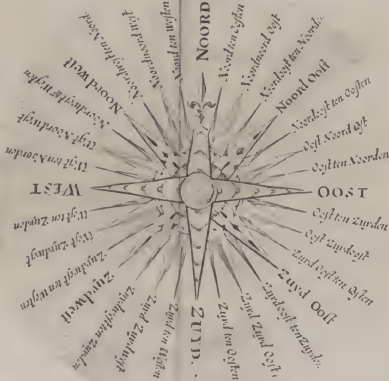 NOORD
Noord ten Oosten
Noordnoord Oost
Noordoost ten Noorden
Noord Oost
Noordoost ten Oosten
Oost Noord Oost
Oost ten Noorden
OOST
Oost ten Zuyden
Oost Zuydoost
Zuyd Oost ten Oosten
Zuyd Oost
Zuyd Oost ten Zuyden
Zuyd Zuyd Oost
Zuyd ten Oosten
ZUYD.
Zuyd ten Westen
Zuyd Zuydwest
Zuydwest ten Zuyden
Zuydwest
Zuydwest ten Westen
West Zuydwest
West ten Zuyden
WEST
West ten Noorden
West Noordwest
Noordwest ten Westen
Noord West
Noordwest ten Noord.
Noordnoordwest
Noord ten Westen